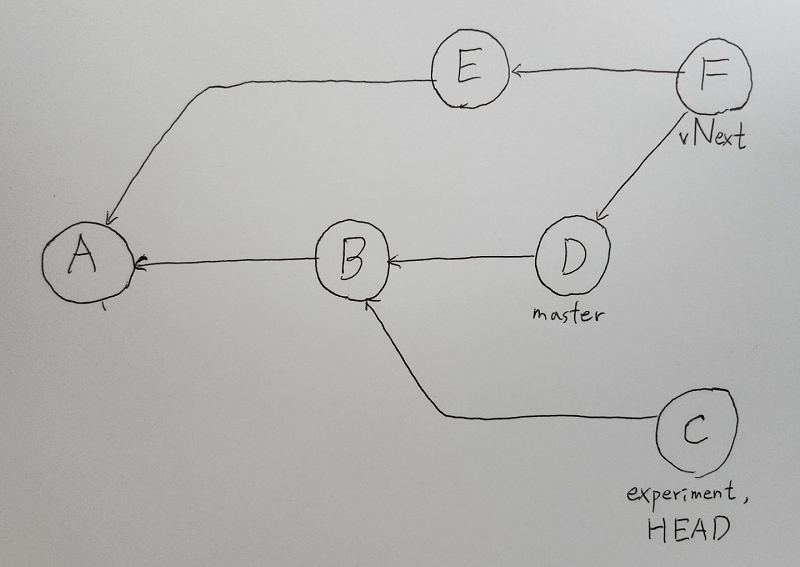 E
F
vNext
A
B
D
master
C
experiment,
HEAD